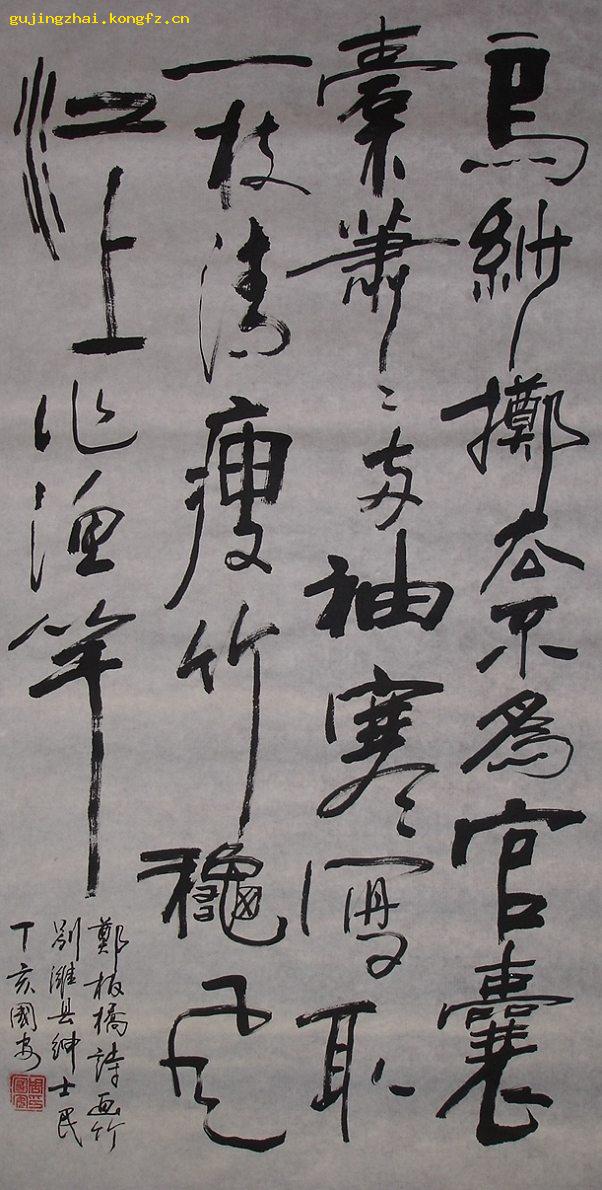 gujingzhai.kongfz.cn
烏紗擲去不為官囊
橐蕭〻两袖寒寫取
一枝清瘦竹穐風
江上作漁竿
鄭板橋詩画竹
別濰县紳士民
丁亥國安